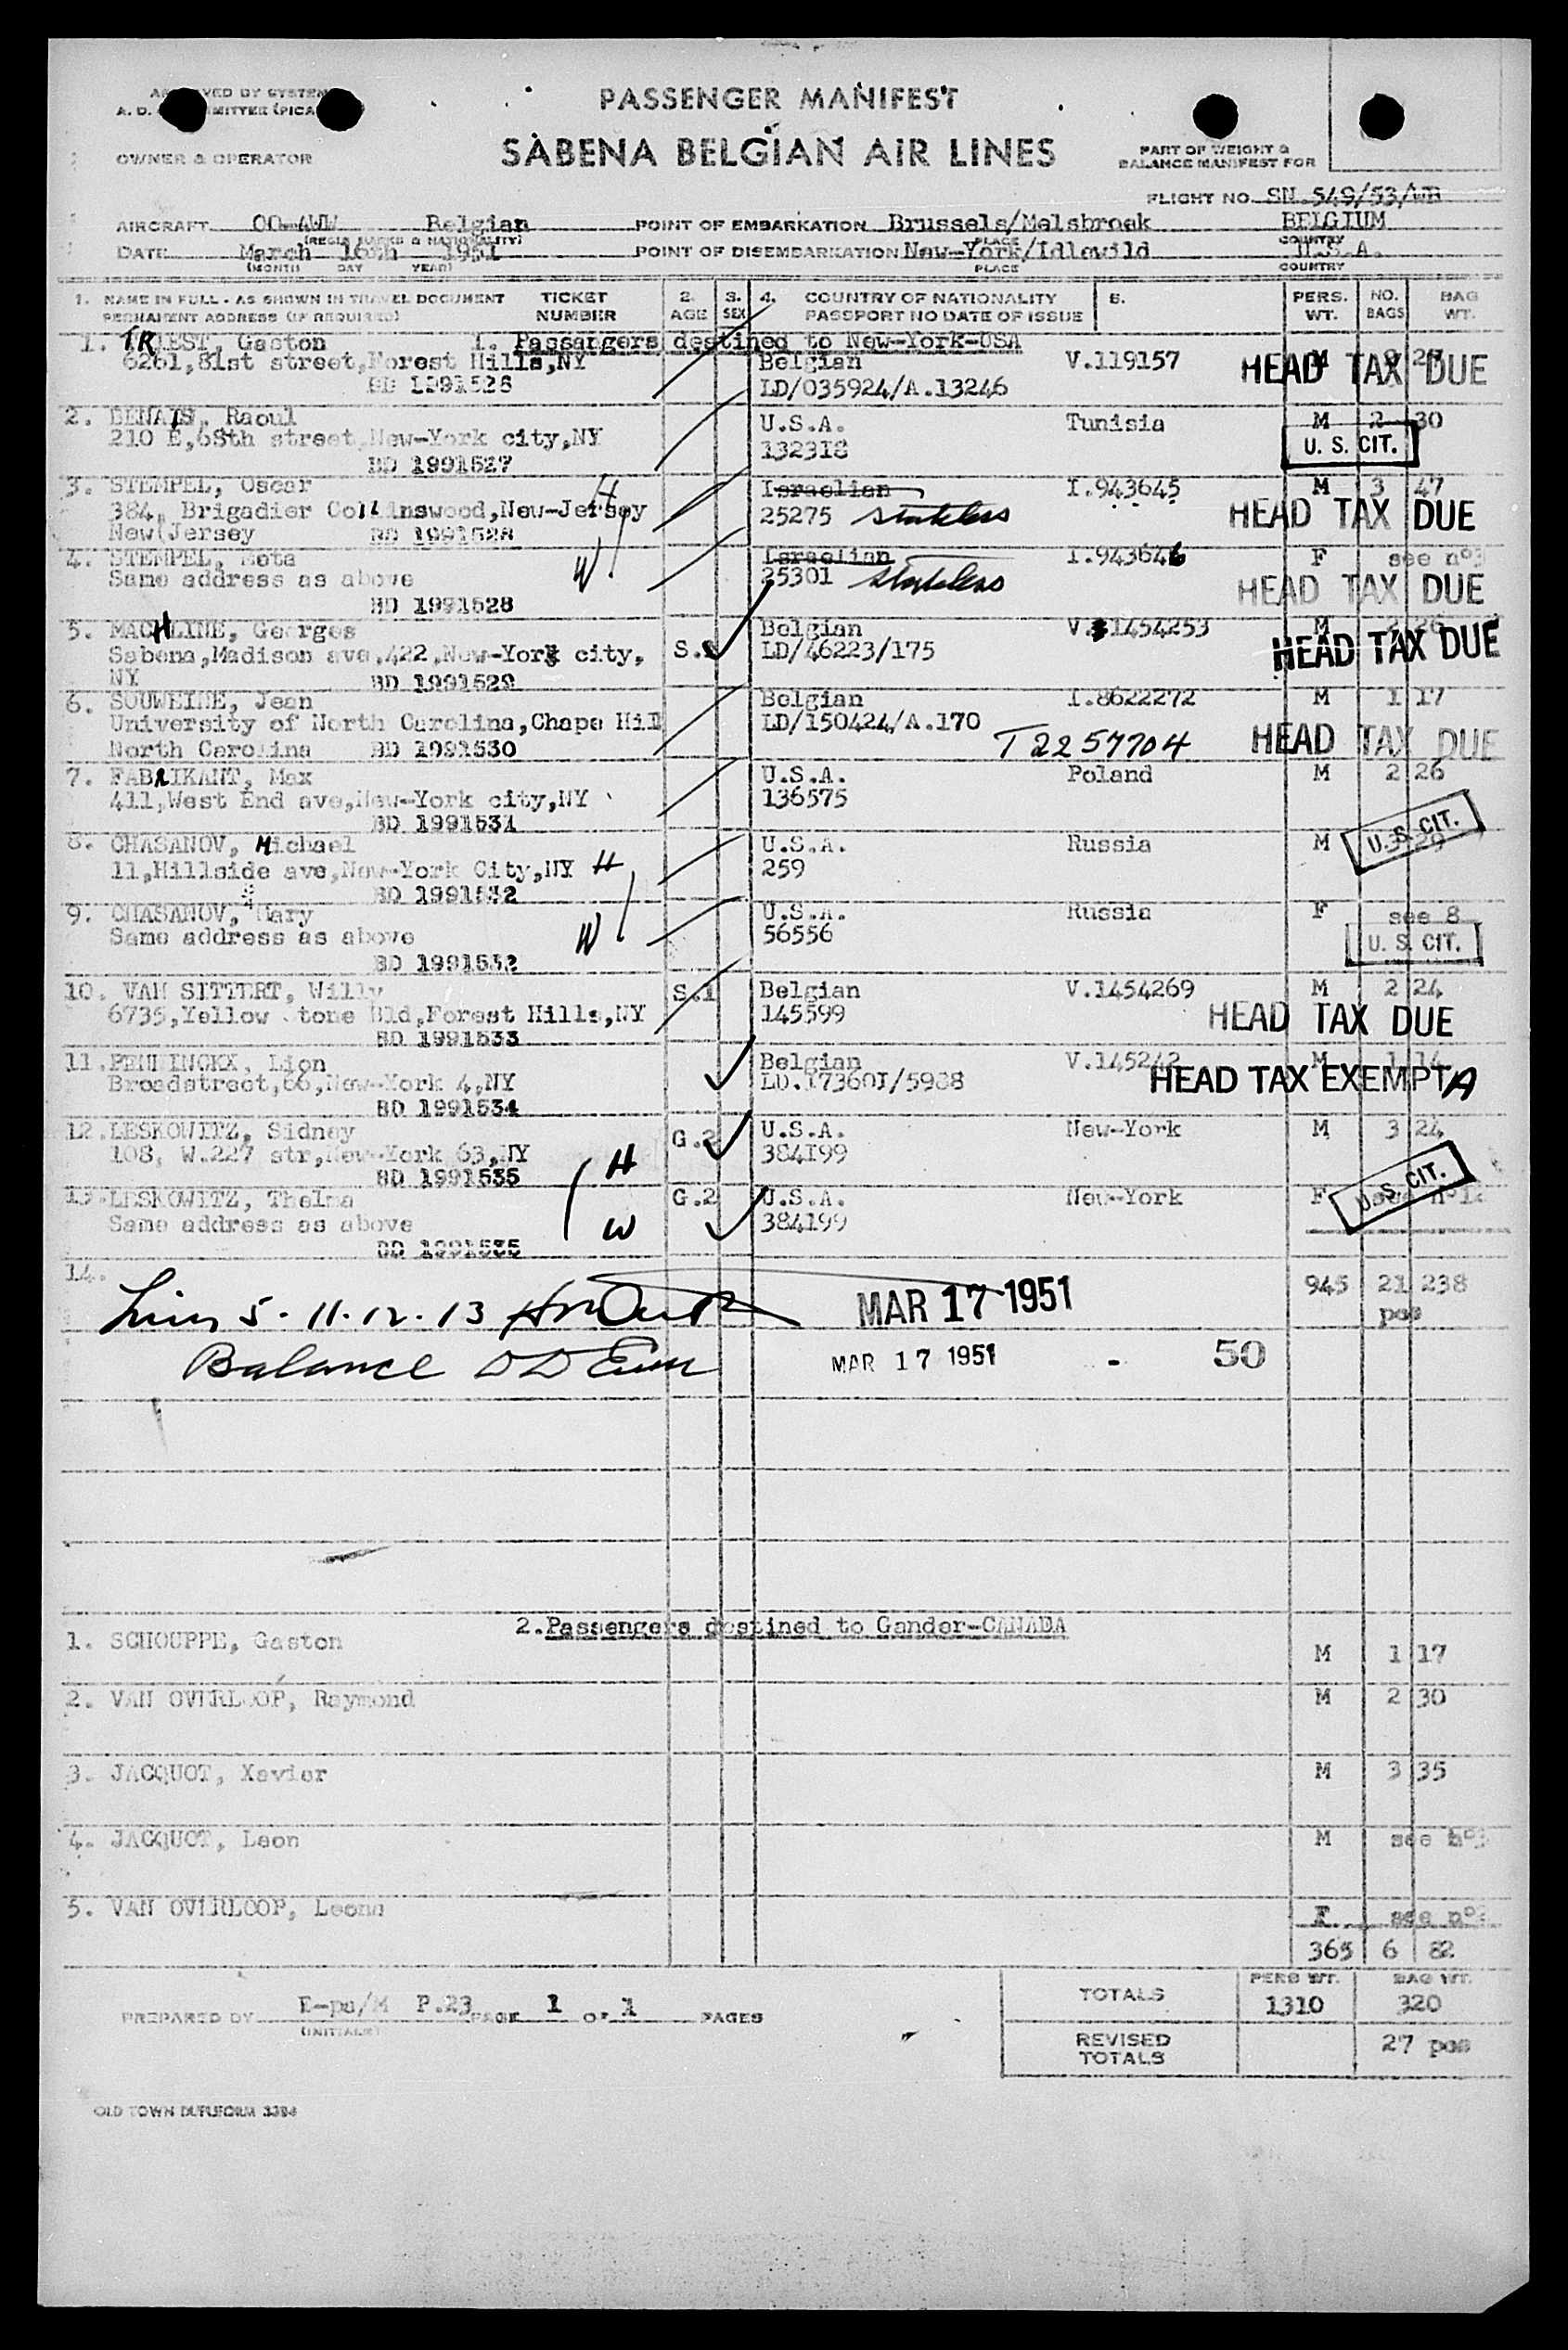 PASSENGER MANIFEST
SABENA BELGIAN AIR LINES
OWNER & OPERATOR
PART OF WEIGHT &
BALANCE MANIFEST FOR
FLIGHT NO. SN.549/53/WB
AIRCRAFT OO-AWW Belgian POINT OF EMBARKATION Brussels/Melsbroek BELGIUM
(REGIS MARKS & NATIONALITY) PLACE COUNTRY
DATE March 16th 1951 POINT OF DISEMBARKATION New-York/Idlewild U.S.A.
(MONTH DAY YEAR) PLACE COUNTRY
1. NAME IN FULL - AS SHOWN IN TRAVEL DOCUMENT TICKET 2. 3. 4. COUNTRY OF NATIONALITY 5. PERS. NO. BAG
PERMANENT ADDRESS (IF REQUIRED) NUMBER AGE SEX PASSPORT NO DATE OF ISSUE WT. BAGS WT.
1. Passangers destined to New-York-USA
1. TRIEST, Gaston
6261,81st street,Forest Hills,NY Belgian V.119157 M HEAD TAX DUE
BD 1991526 LD/035924/A.13246
2. BENAIS, Raoul U.S.A. Tunisia M 2 30
210 E,68th street,New-York city,NY 132318 U. S. CIT.
BD 1991527
3. STEMPEL, Oscar H Israelian I.943645 M 3 47
384, Brigadier Collinswood,New-Jersey 25275 stateless HEAD TAX DUE
New Jersey BD 1991528
4. STEMPEL, Meta W Israelian I.943646 F see n°3
Same address as above 25301 stateless HEAD TAX DUE
BD 1991528
5. MACHLINE, Georges S.1 Belgian V.1454253 M 2 26
Sabena,Madison ave,422,New-York city, LD/46223/175 HEAD TAX DUE
NY BD 1991529
6. SOUWEINE, Jean Belgian I.8622272 M 1 17
University of North Carolina,Chape Hill LD/150424/A.170
North Carolina BD 1991530 T2257704 HEAD TAX DUE
7. FABRIKANT, Max U.S.A. Poland M 2 26
411,West End ave,New-York city,NY 136575
BD 1991531 U. S. CIT.
8. CHASANOV, Michael U.S.A. Russia M 3 29
11,Hillside ave,New-York City,NY H 259
BD 1991532
9. CHASANOV, Mary U.S.A. Russia F see 8
Same address as above W 56556 U. S. CIT.
BD 1991532
10. VAN SITTERT, Willy S.1 Belgian V.1454269 M 2 24
6735,Yellow stone Bld,Forest Hills,NY 145599 HEAD TAX DUE
BD 1991533
11. PENNINCKX, Lion Belgian V.145242 M 1 14
Broadstreet,66,New-York 4,NY LD.17360I/5988 HEAD TAX EXEMPT A
BD 1991534
12. LESKOWITZ, Sidney G.2 U.S.A. New-York M 3 24
108, W.227 str,New-York 63,NY H 384199
BD 1991535 U. S. CIT.
13. LESKOWITZ, Thelma G.2 U.S.A. New-York F see n°12
Same address as above W 384199
BD 1991535
14. 945 21 238
5 - 11 - 12 - 13 MAR 17 1951 pcs
Balance MAR 17 1951 - 50
2. Passengers destined to Gander-CANADA
1. SCHOUPPE, Gaston M 1 17
2. VAN OVERLOOP, Raymond M 2 30
3. JACQUOT, Xavier M 3 35
4. JACQUOT, Leon M see n°3
5. VAN OVERLOOP, Leona F see n°2
365 6 82
PERS WT. BAG WT.
TOTALS 1310 320
PREPARED BY E-ps/M P.23 PAGE 1 OF 1 PAGES
(INITIALS)
REVISED
TOTALS 27 pcs
OLD TOWN DUPLIFORM 3384